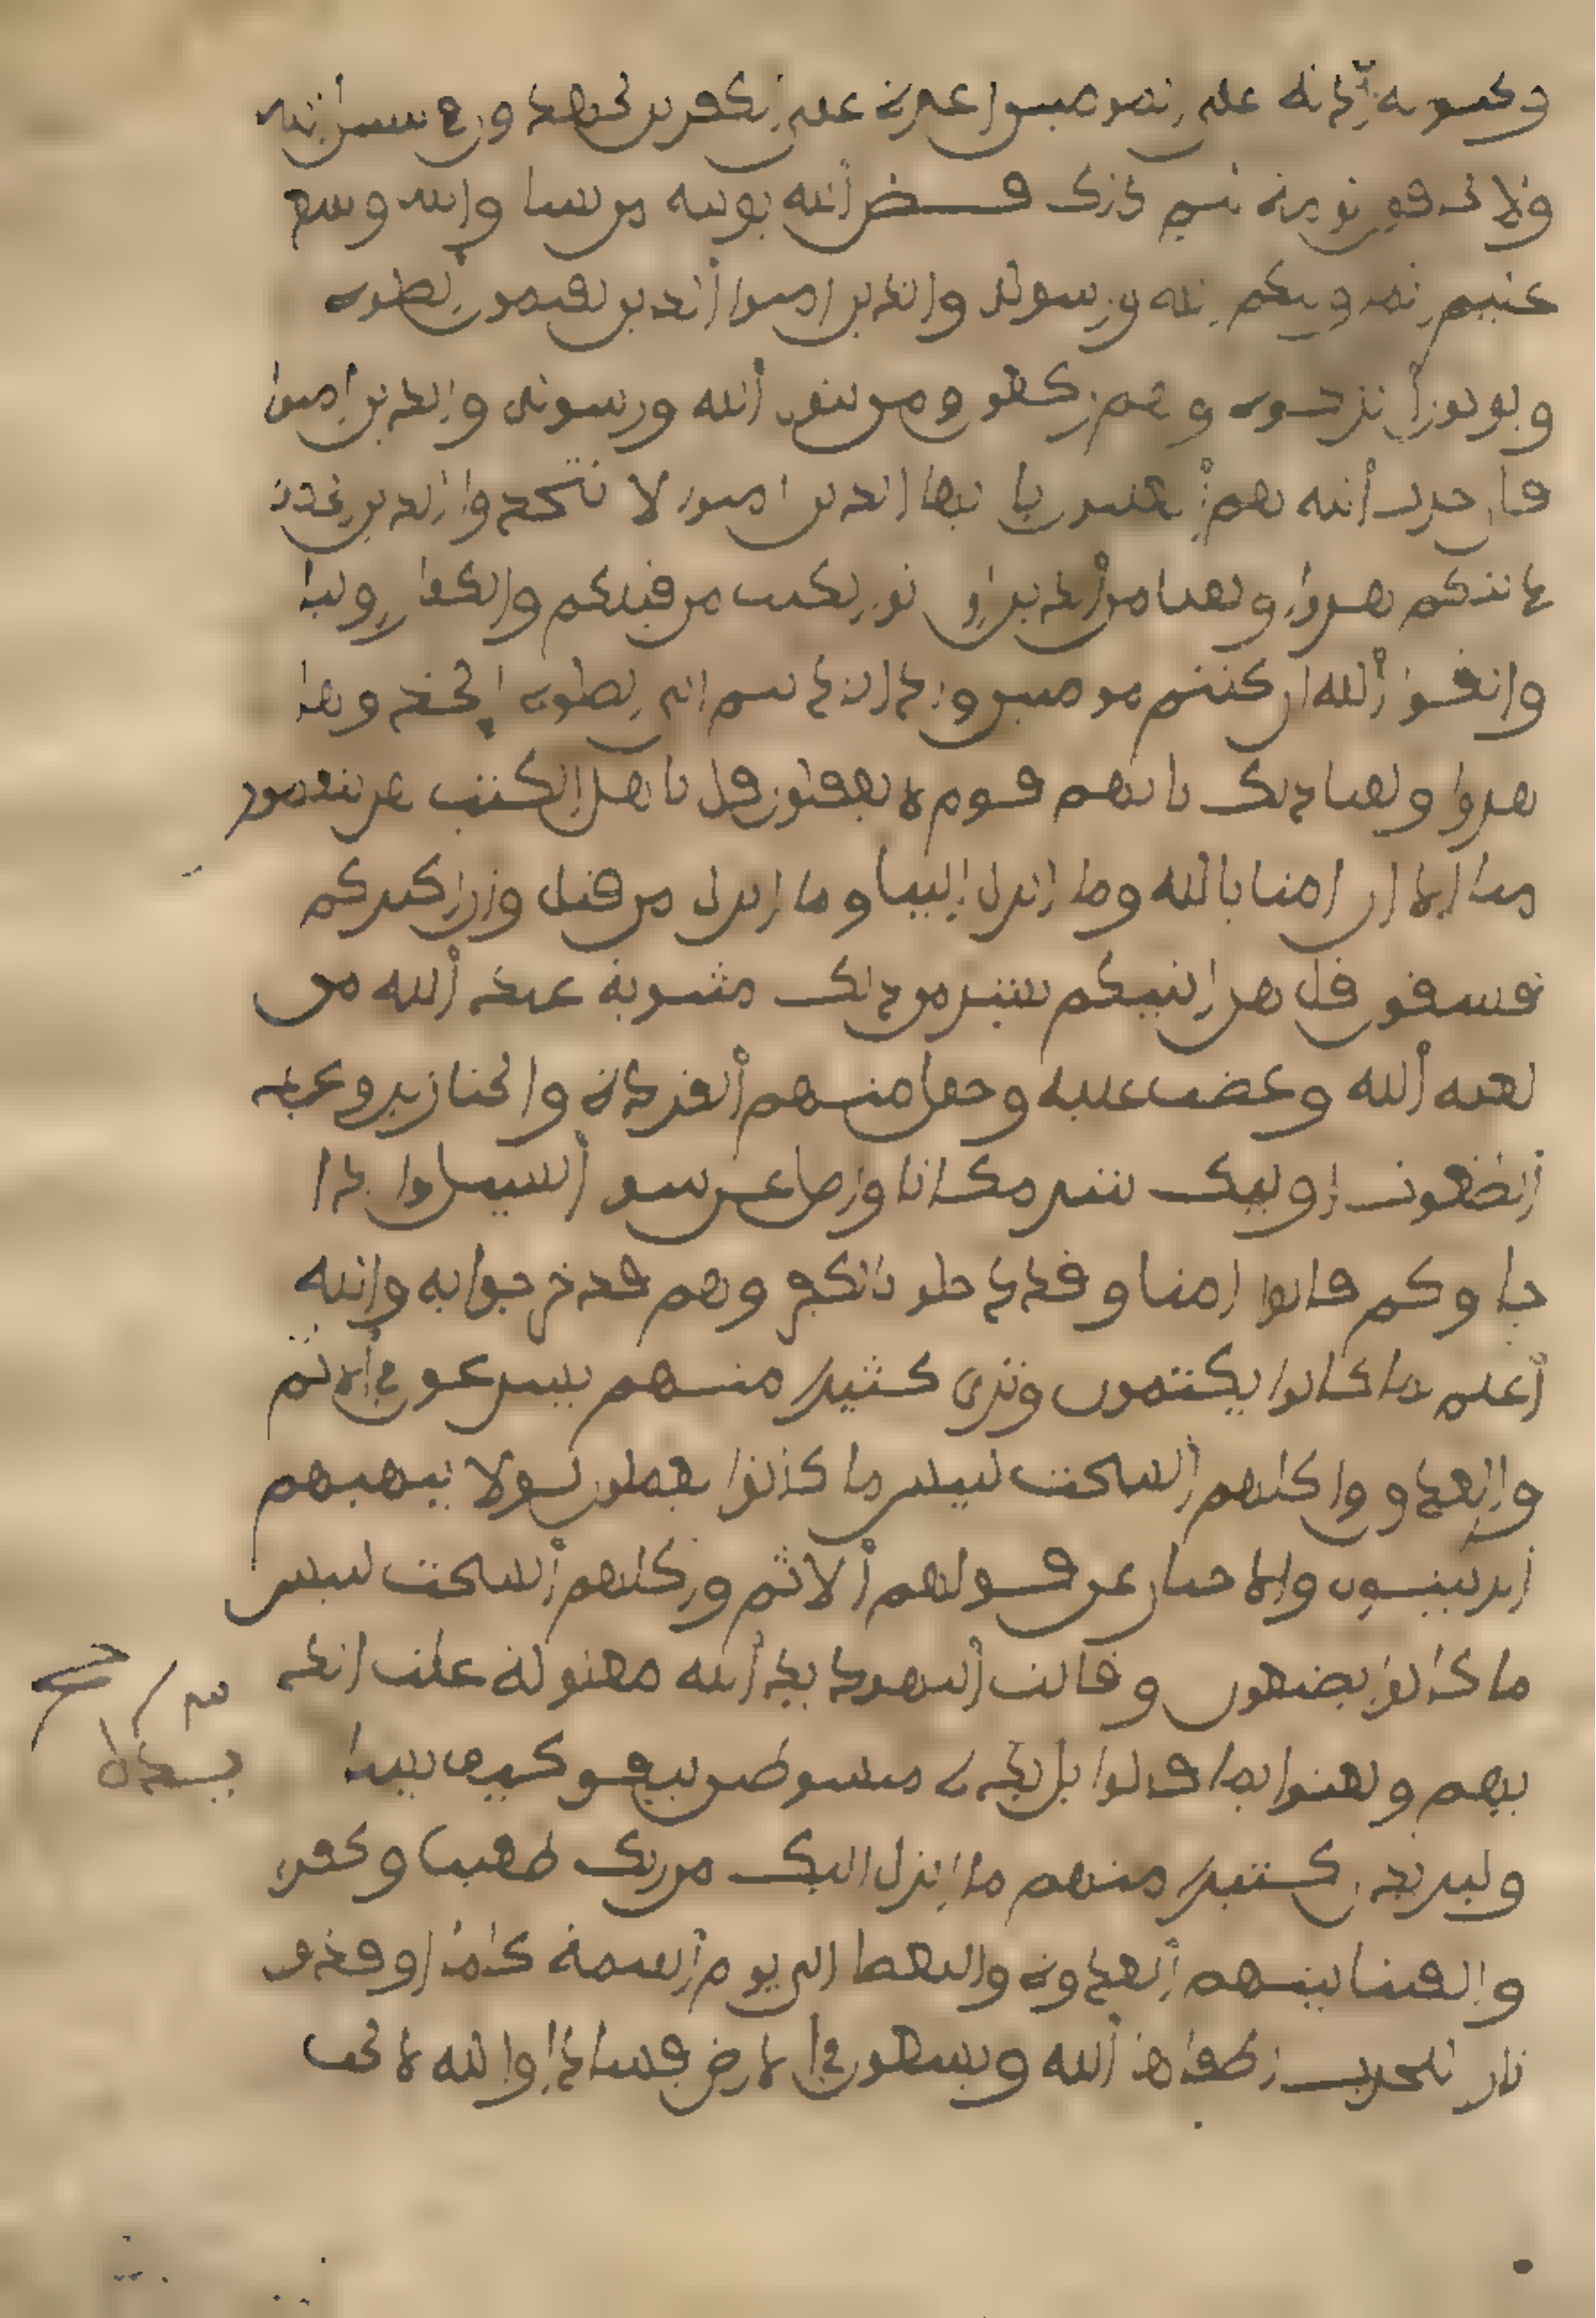 ويحبونه اذلة على المومنين اعزة على الكفرين يجهدون في سبيل الله
ولا يخافون لومة لايم ذلك فضل الله يوتيه من يشا والله وسع
عليم انما وليكم الله ورسوله والذين امنوا الذين يقيمون الصلوة
ويوتون الزكوة وهم ركعون ومن يتول الله ورسوله والذين امنوا
فان حزب الله هم الغلبون يا يها الذين امنوا لا تتخذوا الذين اتخذوا
دينكم هزوا ولعبا من الذين اوتوا الكتب من قبلكم والكفار اوليا
واتقوا الله ان كنتم مومنين واذا ناديتم الى الصلوة اتخذوها
هزوا ولعبا ذلك بانهم قوم لا يعقلون قل ياهل الكتب هل تنقمون
منا الا ان امنا بالله وما انزل الينا وما انزل من قبل وان اكثركم
فسقون قل هل انبيكم بشر من ذلك مثوبة عند الله من
لعنه الله وغضب عليه وجعل منهم القردة والخنازير وعبد
الطغوت اوليك شر مكانا واضل عن سوا السبيل واذا
جاوكم قالوا امنا وقد دخلوا بالكفر وهم قد خرجوا به والله
اعلم بما كانوا يكتمون وترى كثيرا منهم يسرعون في الاثم
والعدوان واكلهم السحت لبيس ما كانوا يعملون لولا ينهيهم
الربنيون والاحبار عن قولهم الاثم واكلهم السحت لبيس
ما كانوا يصنعون وقالت اليهود يد الله مغلولة غلت ايد
يهم ولعنوا بما قالوا بل يداه مبسوطتن ينفق كيف يشا
وليزيدن كثيرا منهم ما انزل اليك من ربك طغينا وكفرا
والقينا بينهم العدوة والبغضا الى يوم القيمة كلما اوقدوا
نارا للحرب اطفاها الله ويسعون في الارض فسادا والله لا يحب